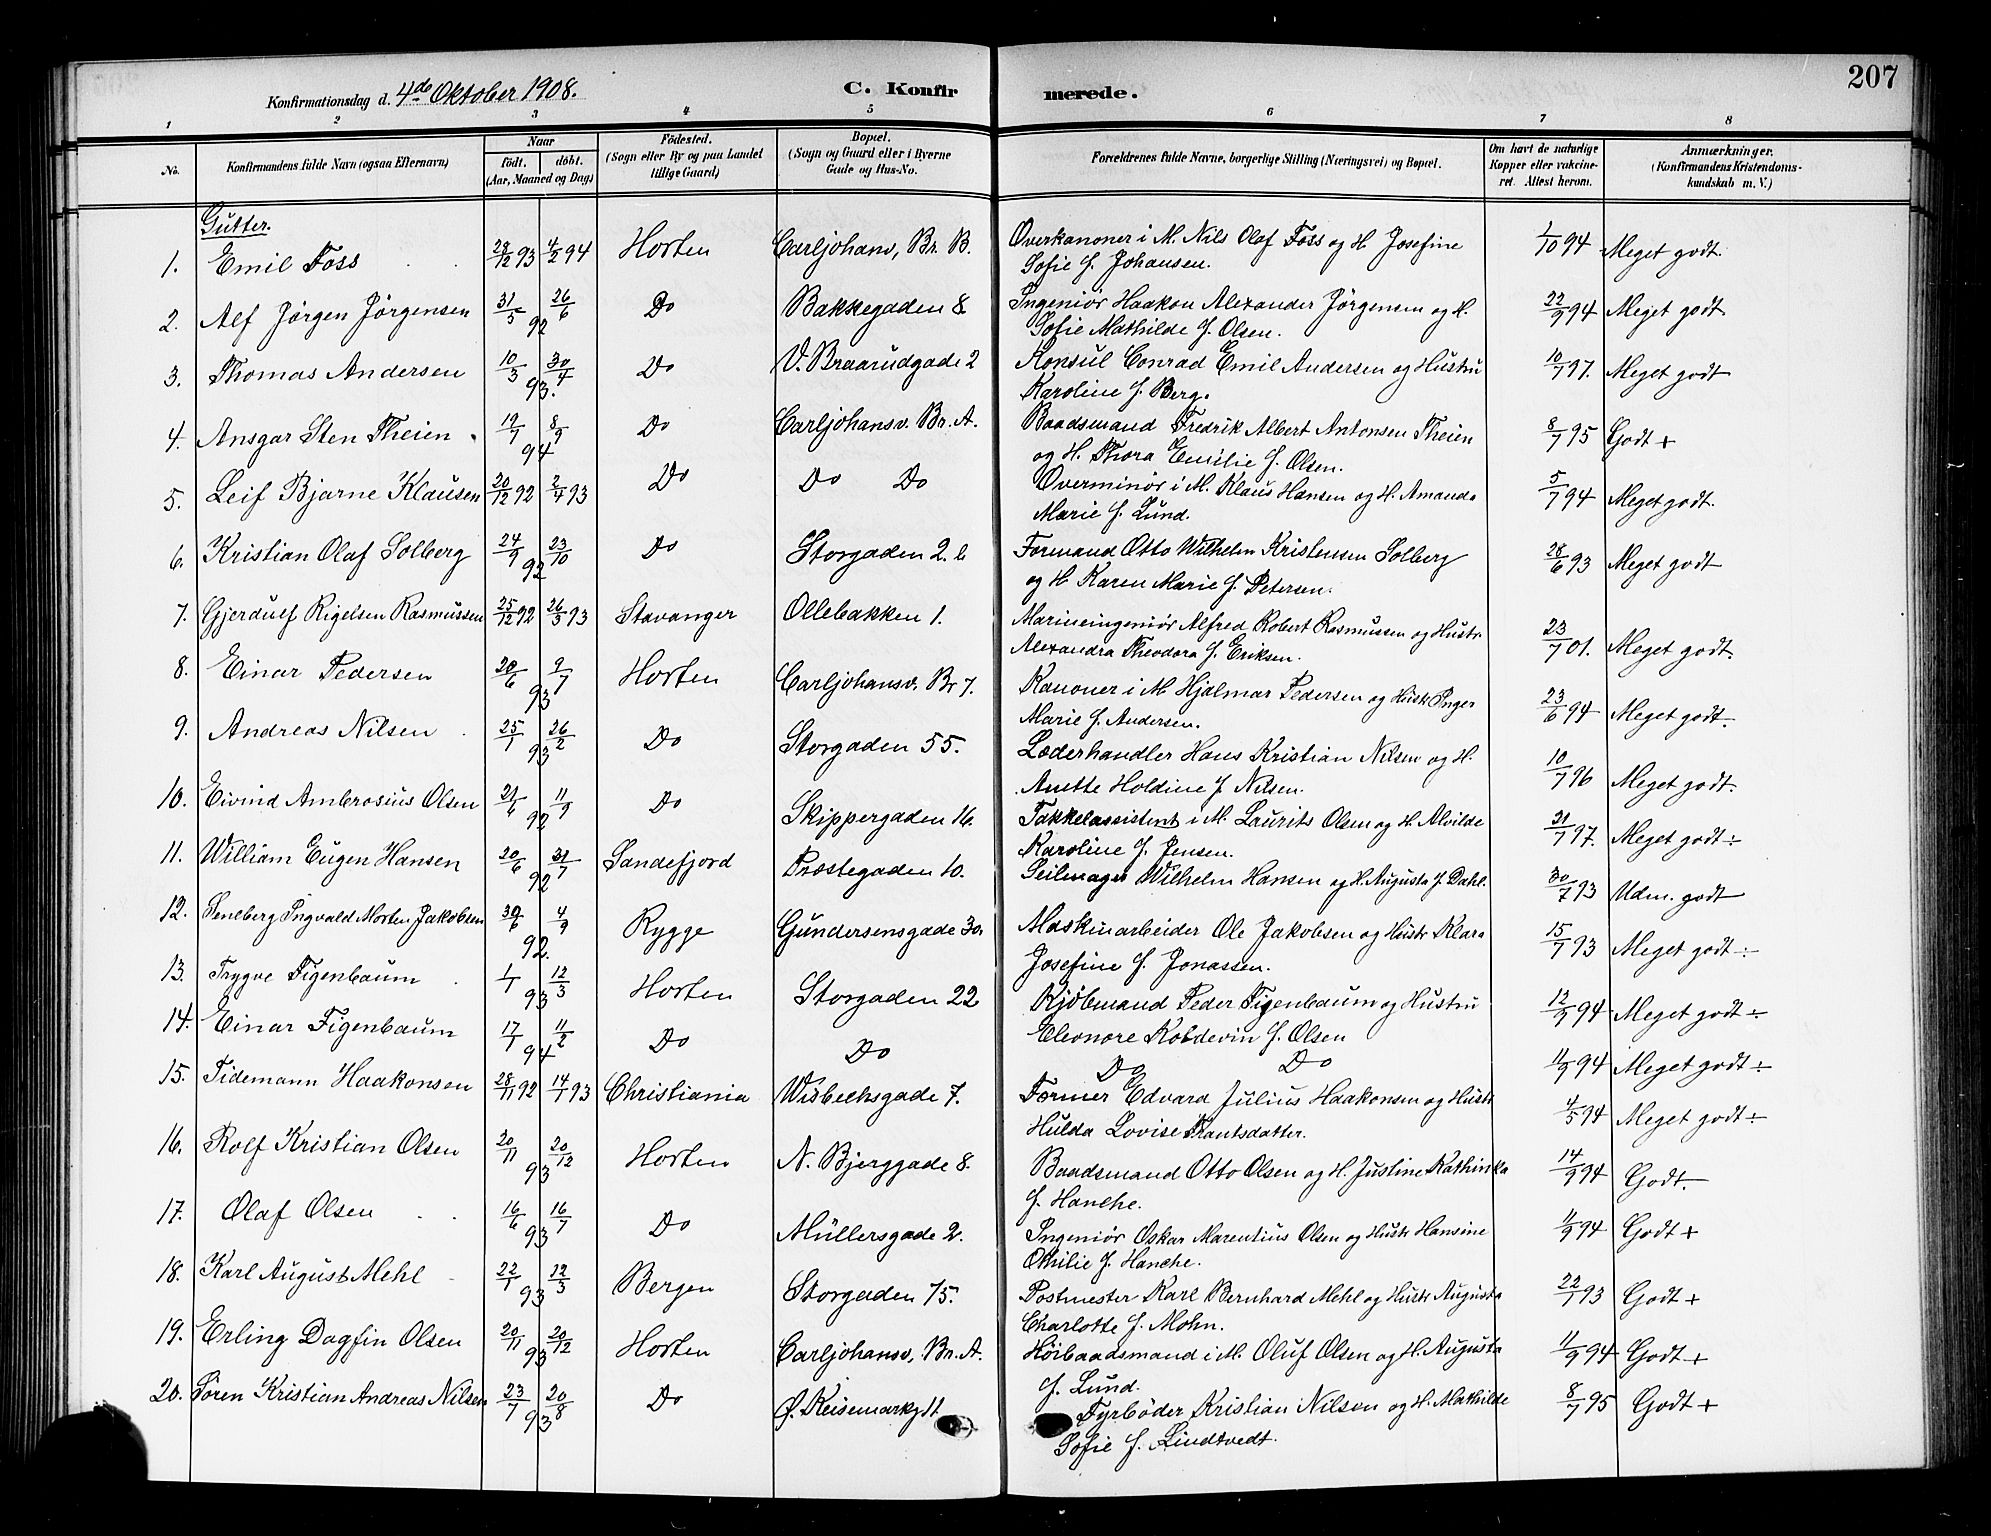 207
Konfirmationsdag d. 4de Oktober 1908. C. Konfirmerede.
1 2 3 4 5 6 7 8
No. Konfirmandens fulde Navn (ogsaa Efternavn) Naar födt. döbt. (Aar, Maaned og Dag) Födested. (Sogn eller By og paa Landet tillige Gaard) Bopæl. (Sogn og Gaard eller i Byerne Gade og Hus-No. Forældrenes fulde Navne, borgerlige Stilling (Næringsvei) og Bopæl. Om havt de naturlige Kopper eller vakcineret. Attest herom. Anmærkninger. (Konfirmandens Kristendomskundskab m. V.)
Gutter.
1. Emil Foss 28/12 93 4/2 94 Horten Carljohansv, Br. B. Overkanoner i M. Nils Olaf Foss og H. Josefine 1/10 94 Meget godt.
Sofie f. Johansen.
2. Alf Jörgen Jörgensen 31/5 26/6 92 Do Bakkegaden 8 Ingeniør Haakon Alexander Jörgensen og H. 22/9 94 Meget godt
Sofie Mathilde f. Olsen.
3. Thomas Andersen 10/3 30/4 93. Do V. Braarudgade 2 Konsul Conrad Emil Andersen og Hustru 10/7 97. Meget godt
Karoline f. Berg.
4. Ansgar Sten Theien 19/7 8/9 94 Do Carljohansv. Br. A. Baadsmand Fredrik Albert Antonsen Theien 8/7 95 Godt +
og H. Thora Emilie f. Olsen.
5. Leif Bjarne Klausen 20/12 92 2/4 93 Do Do Do Overminør i M. Klaus Hansen og H. Amanda 5/7 94 Meget godt.
Marie f. Lund.
6. Kristian Olaf Solberg 24/9 23/10 92 Do Storgaden 2. b Formand Otto Wilhelm Kristensen Solberg 28/6 93 Meget godt
og H Karen Marie f. Petersen.
7. Gjerdulf Rigelsen Rasmussen 25/12 92 26/3 93 Stavanger Ollebakken 1. Marineingeniør Alfred Robert Rasmussen og Hustr 23/7 01. Meget godt.
Alexandra Theodora f. Eriksen.
8. Einar Pedersen 20/6 9/7 93 Horten Carljohansv. Br 7. Kanoner i M Hjalmar Pedersen og Hustr Inger 23/6 94 Meget godt.
Marie f. Andersen.
9. Andreas Nilsen 25/1 26/2 93 Do Storgaden 55. Læderhandler Hans Kristian Nilsen og H. 10/7 96 Meget godt.
Anette Holdine f Nilsen.
10. Eivind Ambrosius Olsen 21/6 11/9 92 Do Skippergaden 16. Takkelassistent i M. Laurits Olsen og H. Alvilde 31/7 97. Meget godt ÷
Karoline f. Jensen.
11. William Eugen Hansen 20/6 31/7 92 Sandefjord Præstegaden 10. Seilmager Wilhelm Hansen og H. Augusta f. Dahl. 30/7 93 Udm. godt
12. Ingvald Morten Jakobsen 30/6 4/9 92. Rygge Gundersensgade 30. Maskinarbeider Ole Jakobsen og Hustr Klara 15/7 93 Meget godt ÷
Josefine f. Jonassen.
13. Trygve Figenbaum 1/1 12/3 93 Horten Storgaden 22 Kjøbmand Peder Figenbaum og Hustru 12/9 94 Meget godt ÷
Eleonore Koldevin f. Olsen
14. Einar Figenbaum 17/1 11/2 94 Do Do Do Do 11/9 94 Meget godt ÷
15. Tidemann Haakonsen 28/11 92 14/1 93 Christiania Wisbechsgade 7. Former Edvard Julius Haakonsen og Hustr 4/5 94 Meget godt ÷
Hulda Lovise Frantsdatter.
16. Rolf Kristian Olsen 20/11 20/12 93 Horten N. Bjerggade 8. Baadsmand Otto Olsen og H. Justine Kathinka 14/9 94 Godt.
f. Hanche.
17. Olaf Olsen 16/6 16/7 93 Do Müllersgade 2. Ingeniør Oskar Marentius Olsen og Hustr Hansine 11/9 94 Godt +
Othilie f. Hanche.
18. Karl August Mehl 22/1 12/3 93 Bergen Storgaden 75. Postmester Karl Bernhard Mehl og Hustr Augusta 22/7 93 Godt +
Charlotte f. Mohn.
19. Erling Dagfin Olsen 20/11 20/12 93 Horten Carljohansv. Br. A. Høibaadsmand i M. Oluf Olsen og H. Augusta 11/9 94 Godt +
f. Lund.
20. Sören Kristian Andreas Nilsen 23/7 20/8 93 Do Ø. Keisemarkgt Fyrbøder Kristian Nilsen og H. Mathilde 8/7 95 Godt +
Sofie f. Lindtvedt.